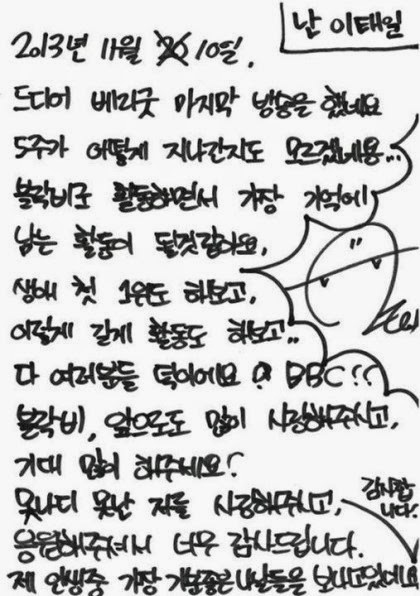 난 이태일
2013년 11월 20 10일.
드디어 베리굿 마지막 방송을 했네요
5주가 어떻게 지나간지도 모르겠네용...
블락비로 활동하면서 가장 기억에
남는 활동이 될것같아요,
생애 첫 1위도 하보고,
이렇게 길게 활동도 하보고..
다 여러분들 덕이에요 BBC!!
블락비, 앞으로도 많이 사랑해주시고,
기대 많이 해주세요!
못나디 못난 저를 사랑해주시고,
감사합
니다!
응원해주셔서 너무 감사드립니다.
제 인생중 가장 기분좋은 나날들을 보내고있네요